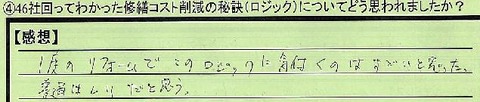 ④46社回ってわかった修繕コスト削減の秘訣(ロジック)についてどう思われましたか？
【感想】
1度のリフォームでこのロジックに気付くのはすごいと思った。
普通はムリだと思う。